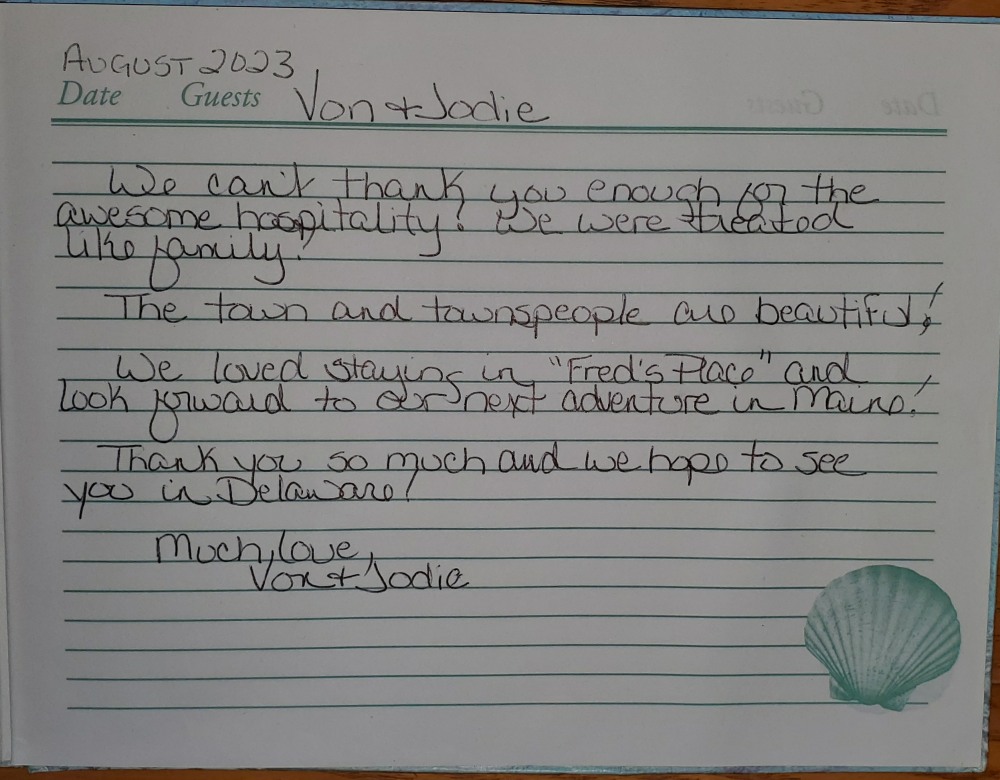 AUGUST 2023
Date Guests Von + Jodie
We can't thank you enough for the
awesome hospitality! We were treated
like family!
The town and townspeople are beautiful!
We loved staying in "Fred's Place" and
look forward to our next adventure in Maine!
Thank you so much and we hope to see
you in Delaware!
Much love,
Von + Jodie